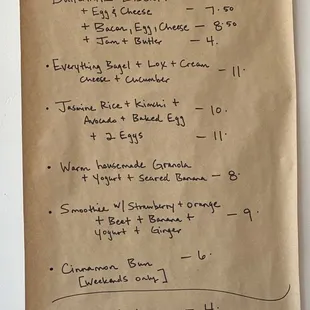 + Egg & Cheese - 7.50
+ Bacon, Egg, Cheese - 8.50
+ Jam + Butter - 4.
• Everything Bagel + Lox + Cream
Cheese + Cucumber - 11.
• Jasmine Rice + Kimchi +
Avocado + Baked Egg - 10.
+ 2 Eggs - 11.
• Warm housemade Granola
+ Yogurt + Seared Banana - 8.
• Smoothie w/ Strawberry + orange
+ Beet + Banana +
Yogurt + Ginger - 9.
• Cinnamon Bun - 6.
[Weekends only]
- 4.